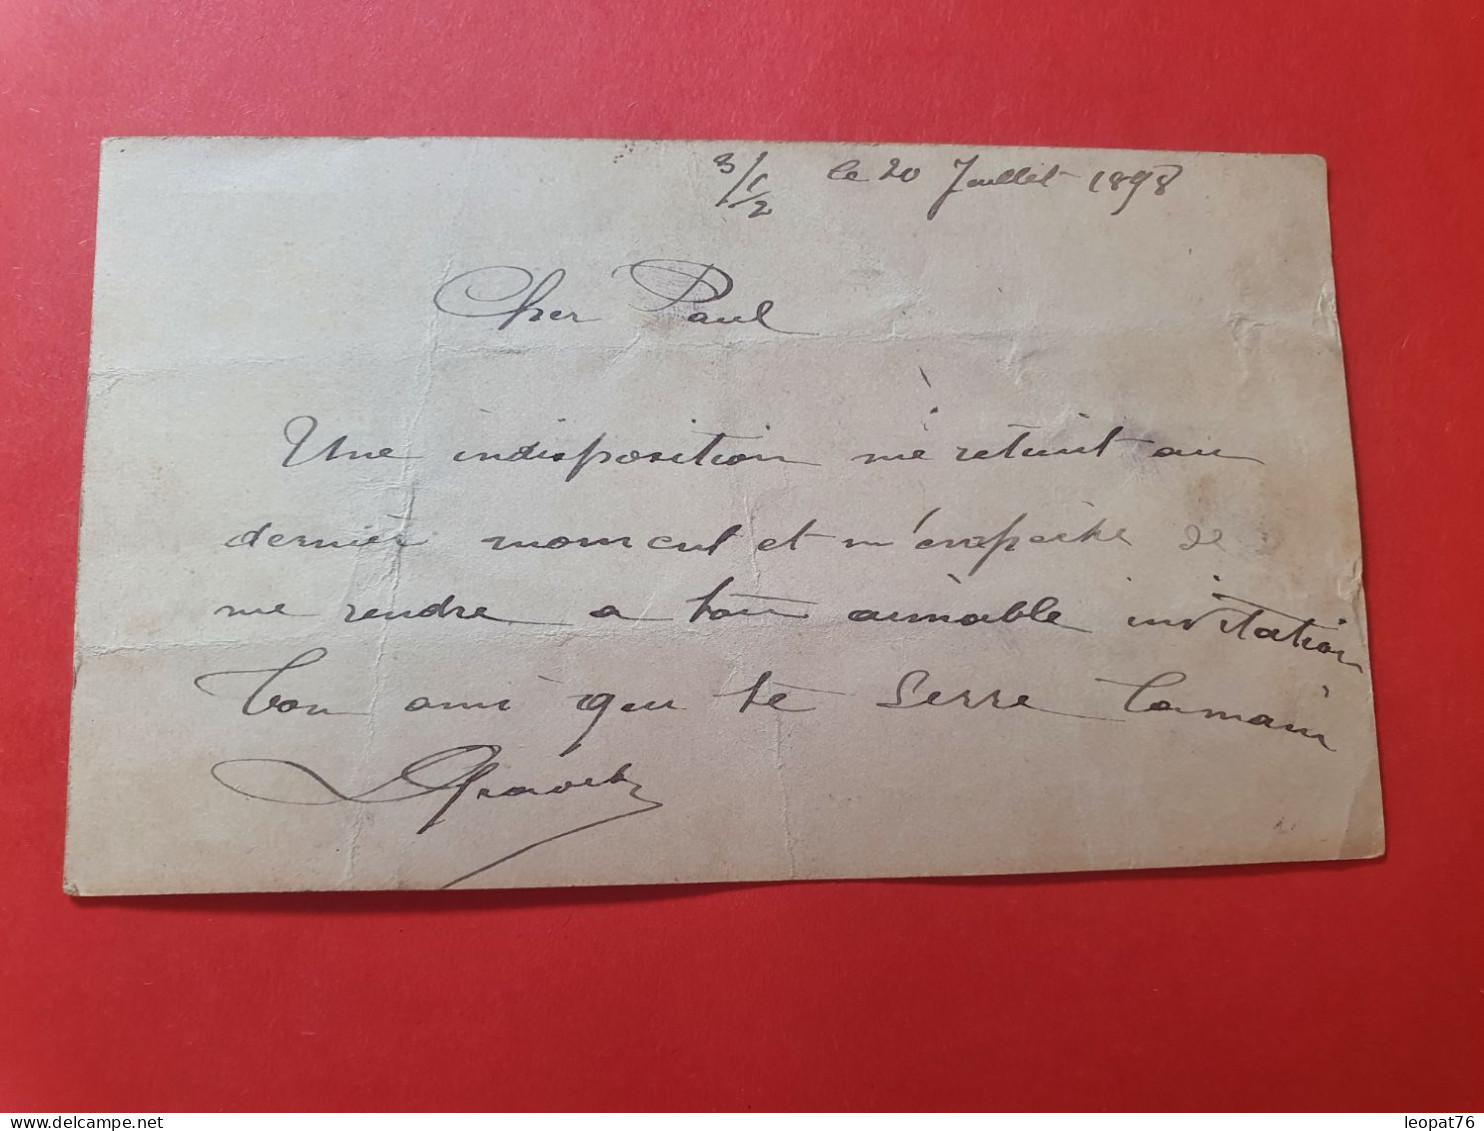 3/1/2 le 20 Juillet 1898
Cher Paul
Une indisposition me retient au
dernier moment et m'empêche de
me rendre a ton aimable invitation
Ton ami qui te serre la main
leopat76
delcampe.net